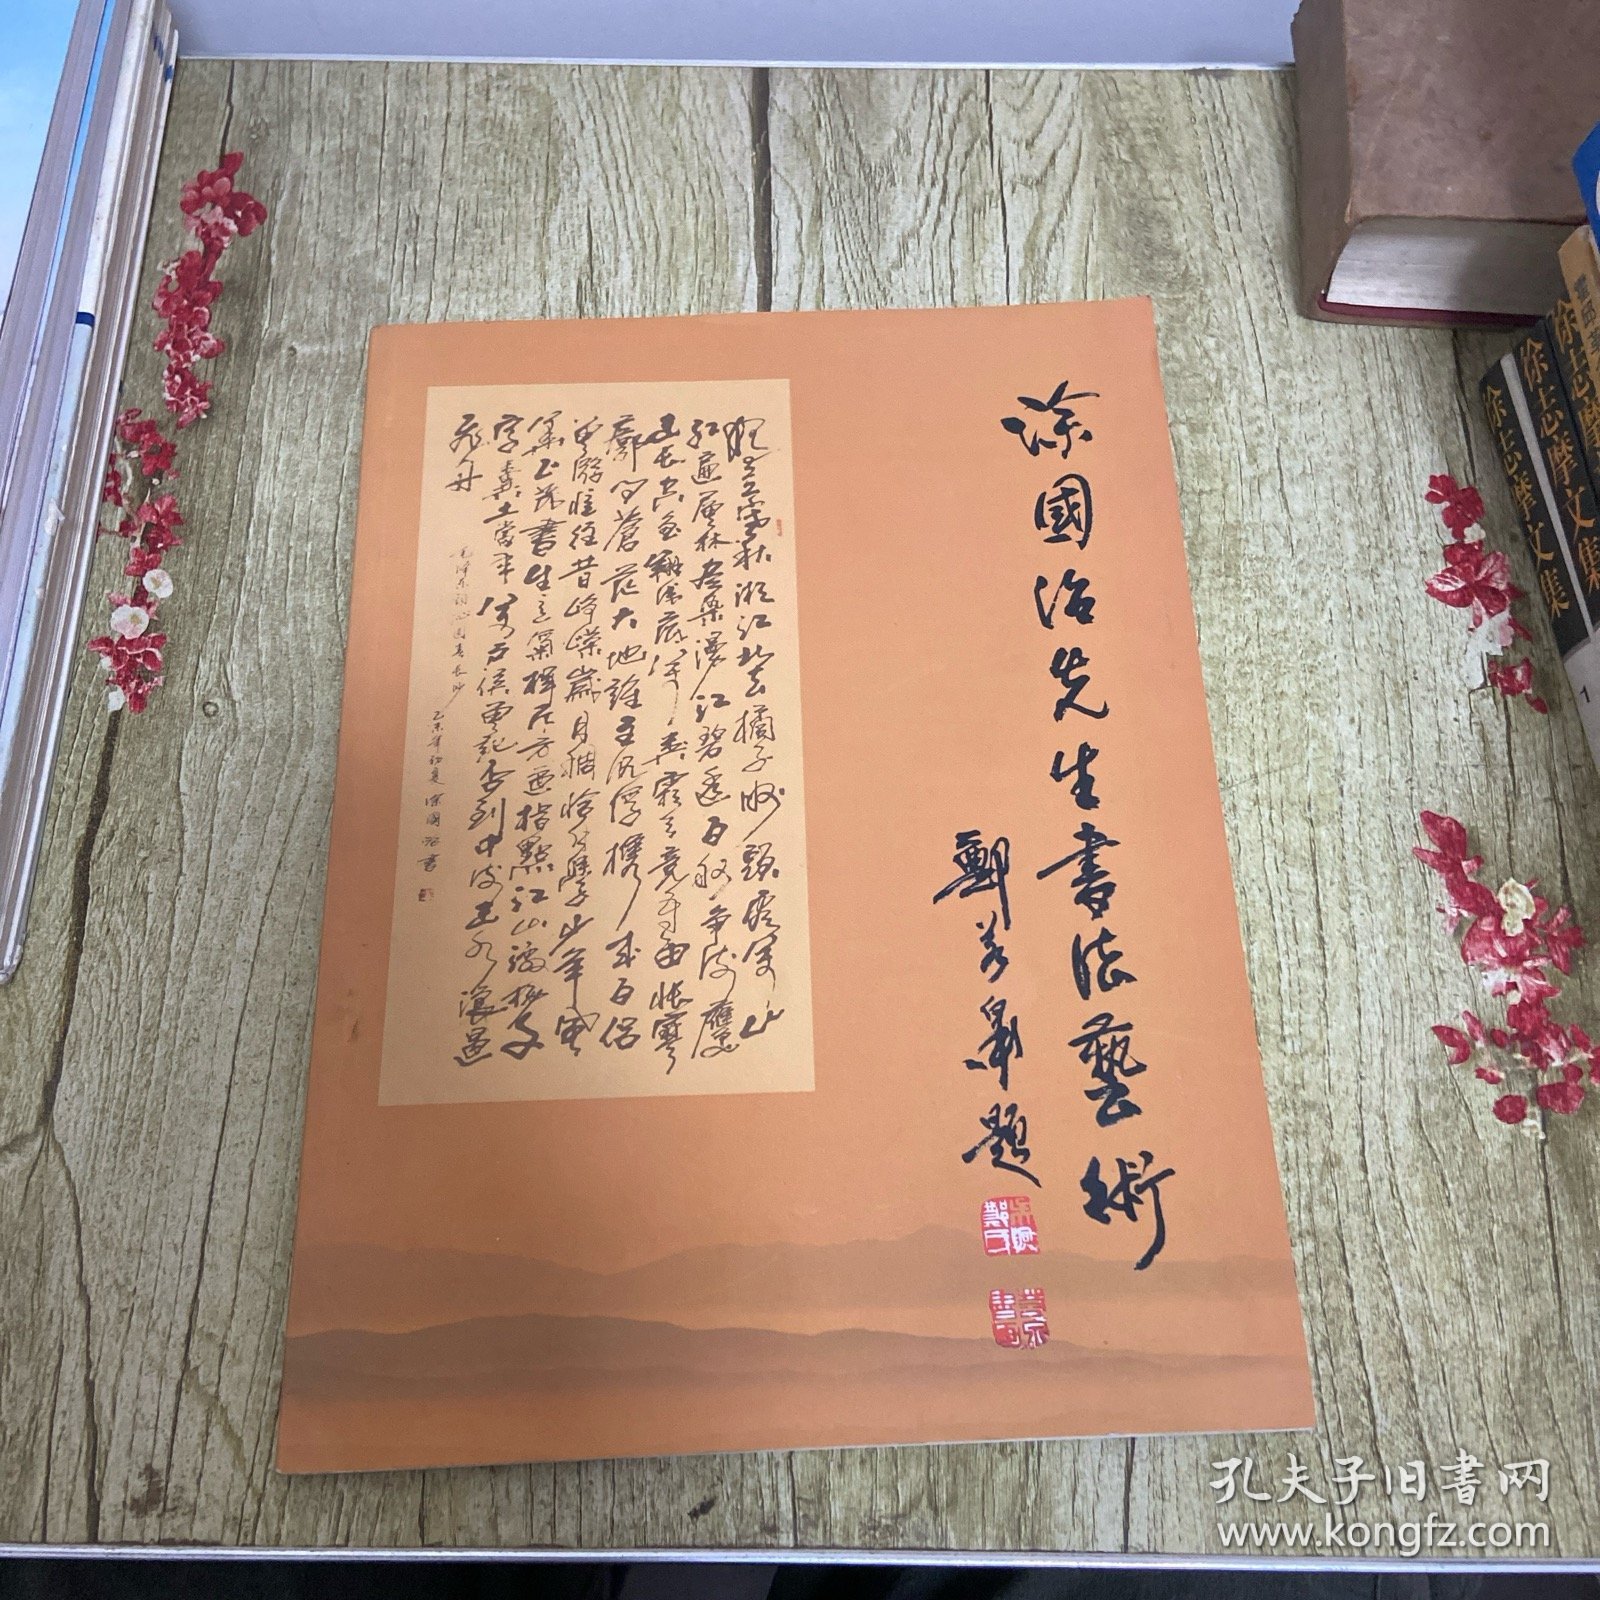 涂國治先生書法藝術
題
獨立寒秋湘江北去橘子洲頭看萬山
紅遍層林盡染漫江碧透百舸爭流鷹
擊長空魚翔淺底萬類霜天競自由悵寥
廓問蒼茫大地誰主沉浮攜來百侶
曾游憶往昔崢嶸歲月稠恰同學少年風
華正茂書生意氣揮斥方遒指點江山激揚文
字糞土當年萬戶侯曾記否到中流擊水浪遏
飛舟
毛澤東詞沁園春長沙 乙未年初夏 涂國治書
徐志摩文集
徐志摩文集
徐志摩
1
孔夫子旧書网
www.kongfz.com